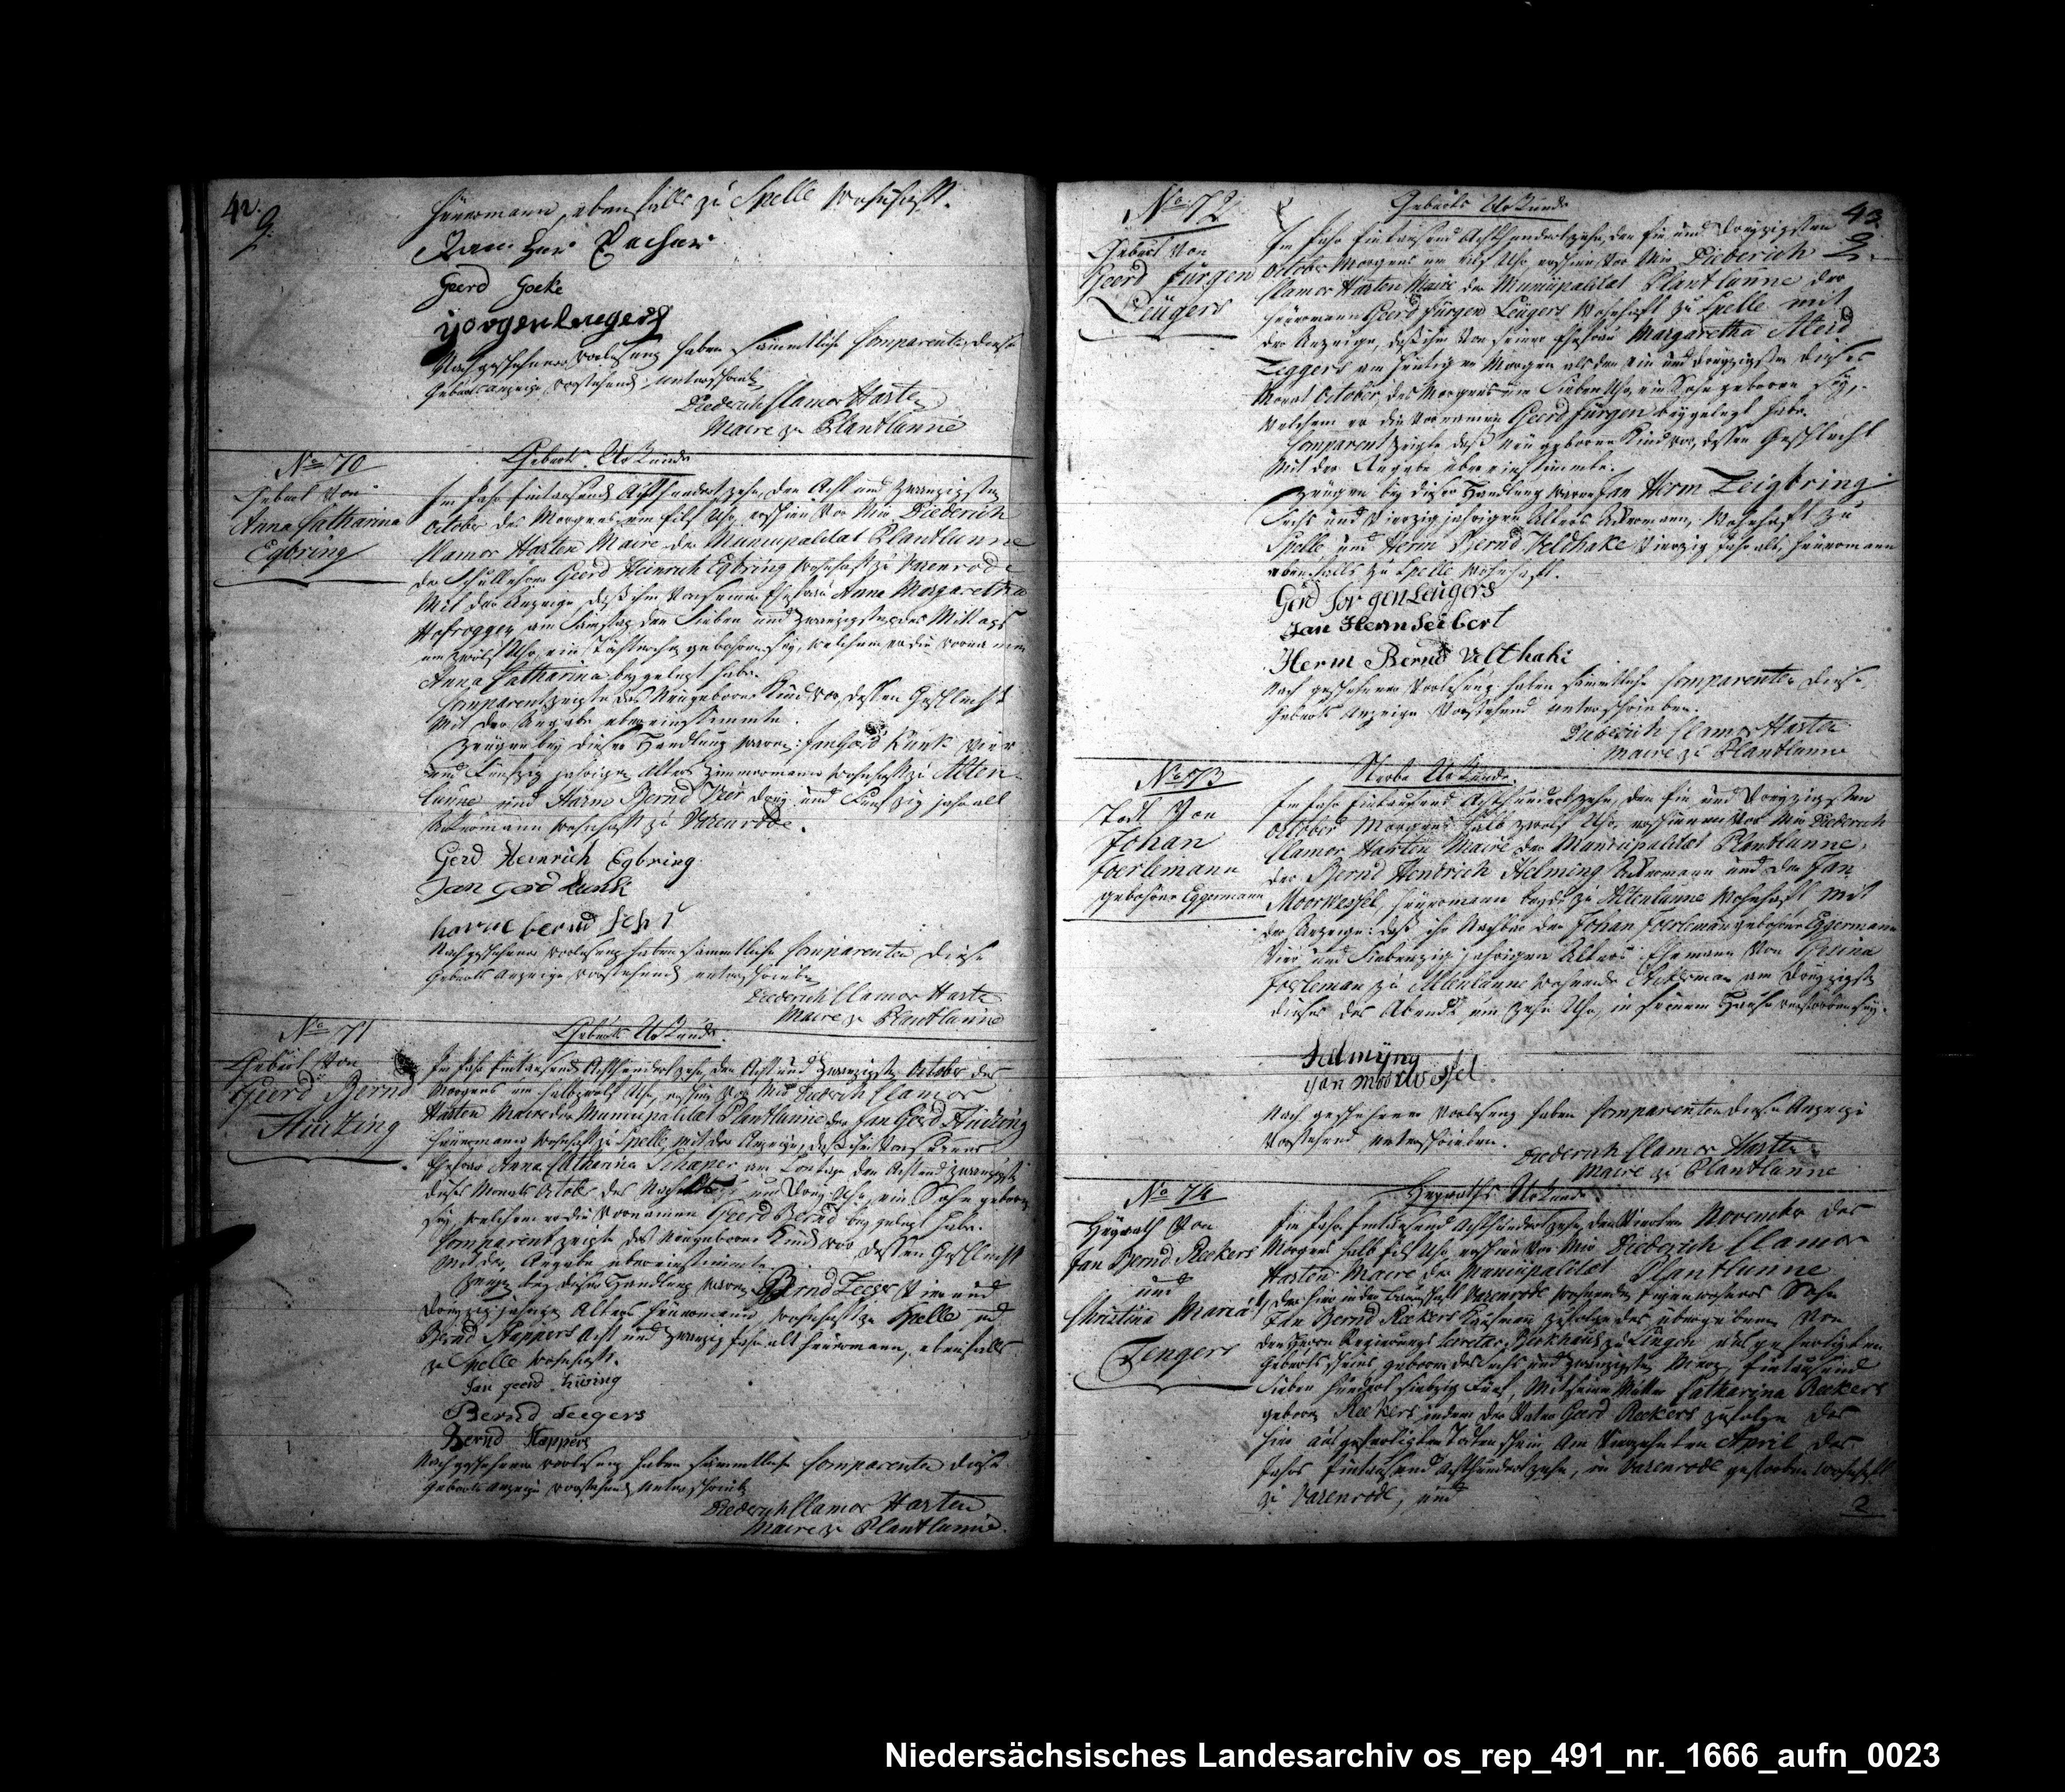 42.
Heuermann, ebenfalls zu Spelle wohnhaft.
Gerd Goeke
Nach geschehener Vorlesung haben sämmtliche Comparenten diese
Geburts Anzeige vorstehend unterschrieben
Diederich Clamor Harten
Maire zu Plantlünne
No 70
Geburt von
Anna Catharina
Egbring
Geburts Urkunde
Im Jahr Eintausend Achthundert zehn, den Acht und Zwanzigsten
October des Morgens um Eilf Uhr, erschien vor Mir Diederich
Clamor Harten Maire der Municipalität Plantlünne
der Schullehrer Geerd Heinrich Egbring wohnhaft zu Varenrode
Mit der Anzeige, daß ihm von seiner Ehefrau Anna Margaretha
am Samstag den Sieben und Zwanzigsten des Mittags
um zwölf Uhr, ein Töchterchen gebohren sey, welchem er die Vornamen
Anna Catharina beygelegt habe.
Comparent zeigte das Neugeborne Kind vor, dessen Geschlecht
Mit der Angabe übereinstimmte.
Zeugen bey dieser Handlung waren: Jan Gerd Kunk Vier
und Fünfzig jährigen Alters Zimmermann wohnhaft zu Alten
lünne und Harm Bernd Veer drey und Fünfzig Jahr alt
Ackermann wohnhaft zu Varenrode.
Gerd Heinrich Egbring
Jan Gerd Kunk
harm bernd
Nach geschehener Vorlesung haben sämmtliche Comparenten diese
Geburts Anzeige vorstehend unterschrieben
Diederich Clamor Harten
Maire zu Plantlünne
No 71
Geburt von
Geerd Bernd
Geburts Urkunde.
Im Jahr Eintausend Achthundert zehn, den Acht und Zwanzigsten October des
Morgens um halb zwölf Uhr, erschien vor Mir Diederich Clamor
Harten Maire der Municipalität Plantlünne der Jan Gerd
Heuermann wohnhaft zu Spelle, mit der Anzeige, daß ihm von seiner
Ehefrau Anna Catharina Schaper am Sontage den Acht und zwanzigsten
dieses Monats October des um Drey Uhr, ein Sohn geboren
sey, welchem er die Vornamen Geerd Bernd bey gelegt habe.
Comparent zeigte das Neugeborne Kind vor, dessen Geschlecht
Mit der Angabe übereinstimmte.
Zeugen bey dieser Handlung waren Bernd Zeeger Vier und
Dreyzig jährigen Alters Heuermann, wohnhaft zu Spelle und
Bernd Stappers Acht und Zwanzig Jahr alt Heuermann, ebenfalls
zu Spelle wohnhaft.
Jan geerd
Bernd Seegers
Bernd Stappers
Nach geschehener Vorlesung haben sämmtliche Comparenten diese
Geburts Anzeige vorstehend unterschrieben
Diederich Clamor Harten
Maire zu Plantlünne.
43
No 72
Geburt von
Geerd Jürgen
Leügers
Geburts Urkunde
Im Jahr Eintausend Achthundert zehn, den Ein und Dreyzigsten
October Morgens um eilf Uhr, erschien vor Mir Diederich
Clamor Harten Maire der Municipalität Plantlünne der
Heuermann Geerd Jürgen Leügers wohnhaft zu Spelle mit
der Anzeige, daß ihm von seiner Ehefrau Margaretha Aleid
Zeggers am heutigen Morgen als den ein und dreyzigsten dieses
Monat October, des Morgens um Sieben Uhr, ein Sohn geboren sey,
welchem er die Vornamen Geerd Jürgen beygelegt habe.
Comparent zeigte das neugeborne Kind vor, dessen Geschlecht
Mit der Angabe übereinstimmte.
Zeugen bey dieser Handlung waren Jan Herm
Sechs und Vierzig jährigen Alters Ackermann, wohnhaft zu
Spelle, und Herm Bernd Veldhake Vierzig Jahr alt, Heuermann
ebenfalls zu Spelle wohnhaft.
Gerd Jorgen Leugers
Jan Herm Seibert
Herm Bernd Velthake
Nach geschehener Vorlesung haben sämmtliche Comparenten diese
Geburts Anzeige vorstehend unterschrieben.
Diederich Clamor Harten
Maire zu Plantlünne
No 73
Todt von
Johan
Foerlemann
gebohrner Eggermann
Sterbe Urkunde
Im Jahr Eintausend Achthundert zehn, den Ein und Dreyzigsten
October Morgens halb zwölf Uhr, erschienen vor Mir Diederich
Clamor Harten Maire der Municipalität Plantlünne,
der Bernd Hendrich Helming Ackermann und der Jan
Moorwessel, Heuermann beyde zu Altenlünne wohnhaft mit
der Anzeige: daß ihr Nachbar der Johan Foerleman gebohrner Eggermann
Vier und Siebenzig jährigen Alters Ehemann von Gesina
Foerleman zu Altenlünne wohnende Ackerman am Dreyzigsten
dieses des Abends um zehn Uhr, in seinem Hause verstorben sey.
helmijng
yan moorwessel
Nach geschehener Vorlesung haben Comparenten diese Anzeige
Vorstehend unterschrieben.
Diederich Clamor Harten
Maire zu Plantlünne
No 74
Heyrath von
Jan Bernd Reekers
und
Christina Maria
Tengers
Heyraths Urkunde.
Im Jahr Eintausend Achthundert zehn, den Vierten November des
Morgens halb Eilf Uhr, erschien vor Mir Diederich Clamor
Harten Maire der Municipalität Plantlünne
der hier in der Bauerschaft Varenrode wohnenden Sohn
Jan Bernd Reekers Kaufman zufolge des übergebenen von
dem Herrn Regierungs Secretar Berkhaus zu Lingen ausgefertigten
Geburtsscheins, geboren den Sechs und zwanzigsten März Eintausend
Sieben hundert siebzig Fünf, Mit seiner Mutter Catharina Reekers
geborne Reekers, indem der Vater Geerd Reekers zufolge des
hier ausgefertigten Todtenschein, am Vierzehnten April des
Jahrs Eintausend Achthundert zehn, in Varenrode gestorben wohnhaft
zu Varenrode, und
2
Niedersächsisches Landesarchiv os_rep_491_nr._1666_aufn_0023